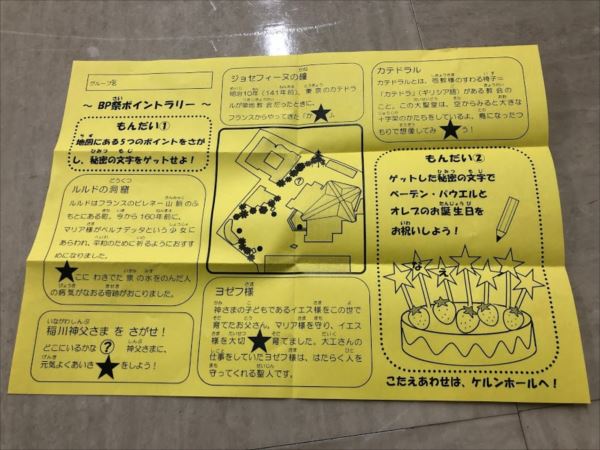 グループ名
～ BP祭ポイントラリー ～
もんだい①
地図にある5つのポイントをさが
し、秘密の文字をゲットせよ！
ルルドの洞窟
ルルドはフランスのピレネー山脈のふ
もとにある町。今から160年前に、
マリア様がベルナデッタという少女に
あらわれ、平和のために祈るようにおすす
めになりました。
★こにわきでた泉の水をのんだ人
の病気がなおる奇跡がおこりました。
稲川神父さまをさがせ！
どこにいるかな？神父さまに、
元気よくあいさ★をしよう！
ジョセフィーヌの鐘
明治10年（141年前）、東京のカテドラ
ルが築地教会だったときに、
フランスからやってきた「か★」
?
ヨゼフ様
神さまの子どもであるイエス様をこの世で
育てたお父さん。マリア様を守り、イエス
様を大切★育てました。大工さんの
仕事をしていたヨゼフ様は、はたらく人を
守ってくれる聖人です。
カテドラル
カテドラルとは、司教様のすわる椅子＝
「カテドラ」（ギリシア語）がある教会の
こと。この大聖堂は、空からみると大きな
十字架のかたちをしているよ。鳥になったつ
もりで想像してみ★う！
もんだい②
ゲットした秘密の文字で
ベーデン・パウエルと
オレブのお誕生日を
お祝いしよう！
な
え
こたえあわせは、ケルンホールへ！